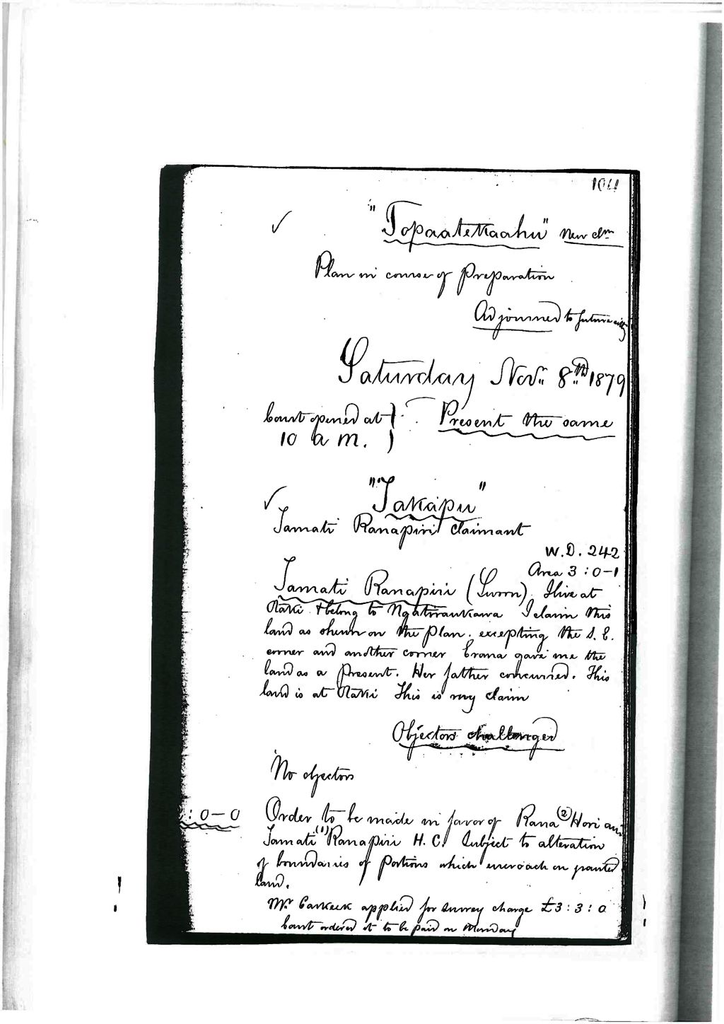 104
"Topaatekaahu" New clm
Plan in course of Preparation
Adjourned to future
Saturday Nov.. 8..th 1879
Court opened at ) Present the same
10 a m. )
"Takapu"
Tamati Ranapiri Claimant
W.D. 242
Area 3 : 0 - 1
Tamati Ranapiri (Sworn) I live at
Otaki & belong to Ngatiraukawa I claim this
land as shewn on the Plan. excepting the S. E.
corner and another corner Erana gave me the
land as a Present. Her father concurred. This
land is at Otaki This is my claim
Objectors challenged
No objectors
: 0 - 0 Order to be made in favor of Rana (2) Hori and
Tamati (1) Ranapiri H. C. Subject to alteration
of boundaries of Portions which encroach on granted
land.
Mr Carkeek applied for survey charge £3 : 3 : 0
Court ordered it to be paid on Monday